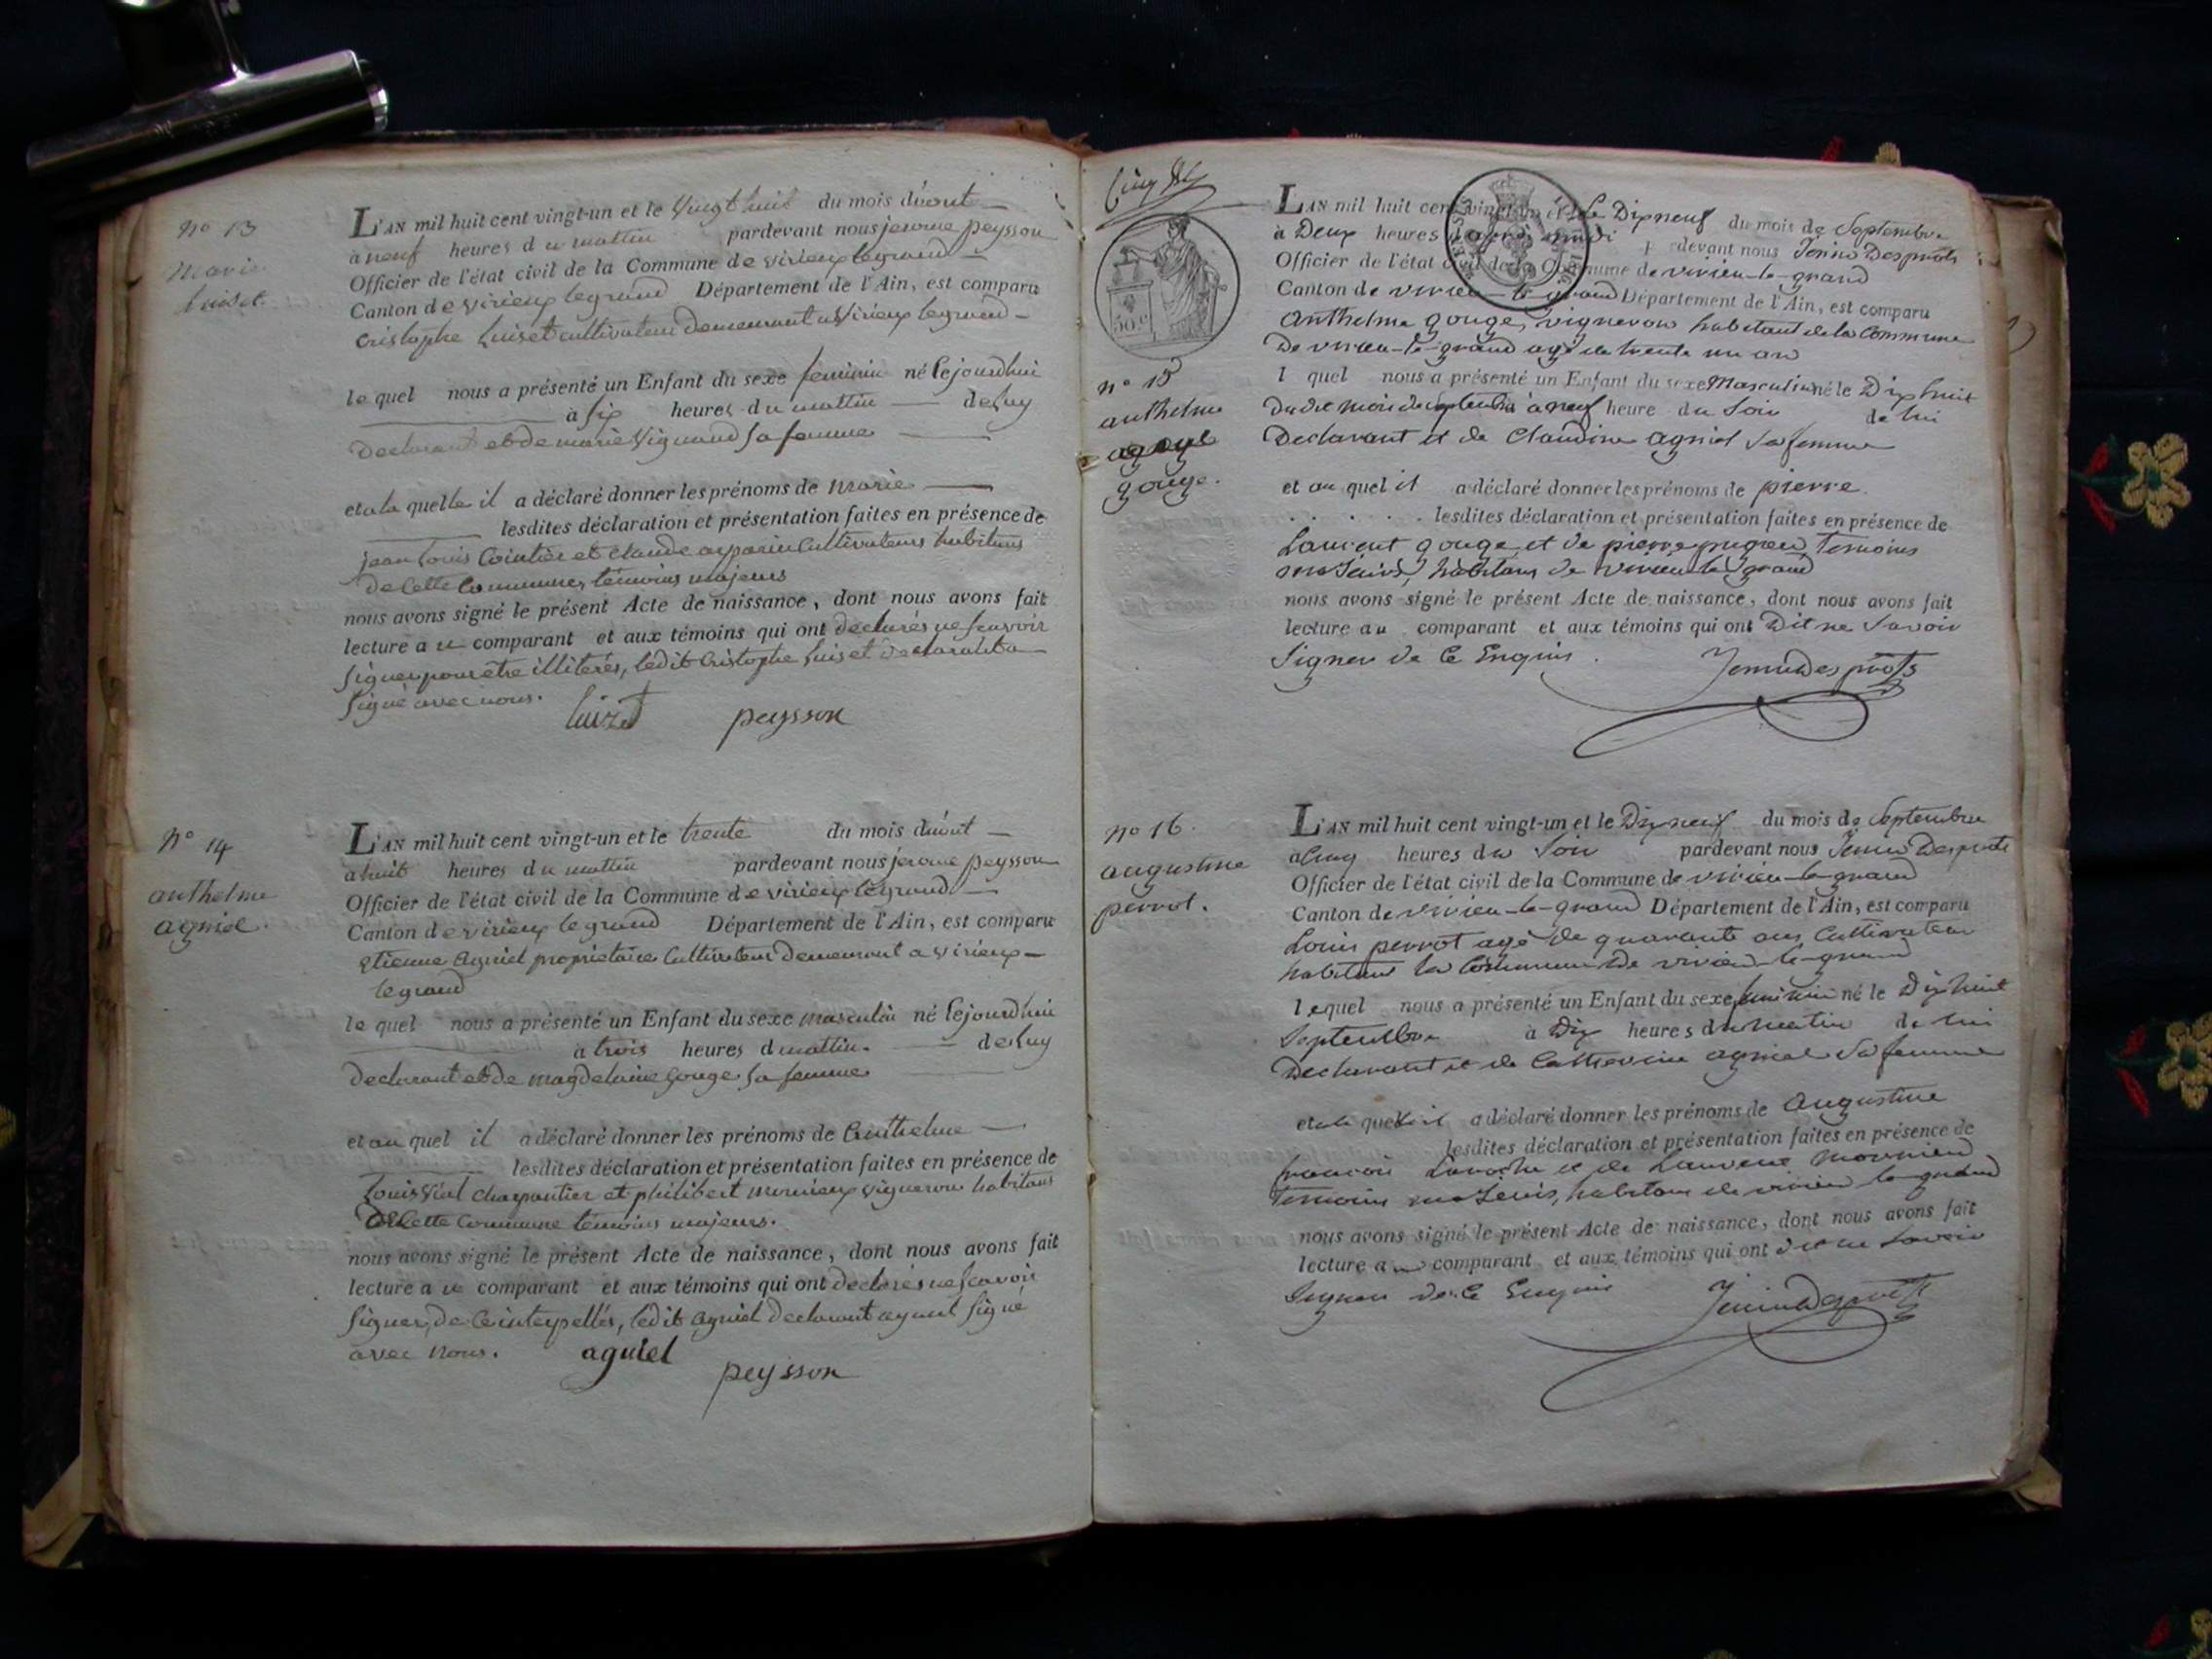 n° 13
marie
luiset
L'AN mil huit cent vingt-un et le vingt huit du mois d'aout
a neuf heures du mattin pardevant nous jerome peysson
Officier de l'état civil de la Commune de virieux legrand
Canton de virieux legrand Département de l'Ain, est comparu
cristophe luiset cultivateur demeurant a virieux legrand
le quel nous a présenté un Enfant du sexe feminin né le jourdhui
à six heures du mattin de luy
declarant et de marie vignand sa femme
et a la quelle il a déclaré donner les prénoms de marie
lesdites déclaration et présentation faites en présence de
jean louis Cointier et claude cultivateurs habitans
de cette commune, témoins majeurs
nous avons signé le présent Acte de naissance, dont nous avons fait
lecture au comparant et aux témoins qui ont declarés ne scavoir
signer pour etre illiterés, ledit cristophe luiset declarant a
signé avec nous.
luizet peysson
n° 14
anthelme
agniel.
L'AN mil huit cent vingt-un et le trente du mois d'aout
a huit heures du mattin pardevant nous jerome peysson
Officier de l'état civil de la Commune de virieux legrand
Canton de virieux le grand Département de l'Ain, est comparu
etienne agniel propriétaire cultivateur demeurant a virieux
le grand
le quel nous a présenté un Enfant du sexe masculin né le jourdhui
a trois heures d mattin. de luy
declarant et de magdelaine gouge sa femme
et au quel il a déclaré donner les prénoms de anthelme
lesdites déclaration et présentation faites en présence de
louis vial charpentier et philibert mornieux vigneron habitans
de cette commune témoins majeurs.
nous avons signé le présent Acte de naissance, dont nous avons fait
lecture au comparant et aux témoins qui ont declarés ne scavoir
signer, de ce interpellés, ledit agniel declarant ayant signé
avec nous. agniel
peysson
50 c
n° 15
anthelme
gouge.
L'AN mil huit cent vingt-un et le Dix neuf du mois de Septembre
à Deux heures pardevant nous Jenin Desprots
Officier de l'état civil de la Commune de virieu-le-grand
Canton de virieu-le-grand Département de l'Ain, est comparu
anthelme gouge, vigneron habitant de la Commune
De virieu-le-grand agé de trente un ans
l quel nous a présenté un Enfant du sexe Masculin né le Dix huit
Dudit mois de septembre à neuf heure du Soir de lui
Declarant et de Claudine agniel Sa femme
et au quel il a déclaré donner les prénoms de pierre
lesdites déclaration et présentation faites en présence de
Laurent gouge et de pierre pugieu, Temoins
majeurs, habitans de virieu le grand
nous avons signé le présent Acte de naissance, dont nous avons fait
lecture au comparant et aux témoins qui ont Dit ne Savoir
Signer de Ce Enquis. Jenin Desprots
n° 16.
augustine
perrot.
L'AN mil huit cent vingt-un et le Dix neuf du mois de Septembre
a Cinq heures du Soir pardevant nous Jenin Desprots
Officier de l'état civil de la Commune de virieu-le-grand
Canton de virieu-le-grand Département de l'Ain, est comparu
Louis perrot agé de quarante ans Cultivateur
habitant la Commune De virieu-le-grand
lequel nous a présenté un Enfant du sexe feminin né le Dix huit
Septembre à Dix heures du matin de lui
Declarant et de Catherine agniel Sa femme
et a la quelle il a déclaré donner les prénoms de Augustine
lesdites déclaration et présentation faites en présence de
francois Laroche et de Laurent Mornieu
Temoins majeurs, habitans de virieu le grand
nous avons signé le présent Acte de naissance, dont nous avons fait
lecture au comparant et aux témoins qui ont dit ne Savoir
Signer de Ce Enquis Jenin Desprots